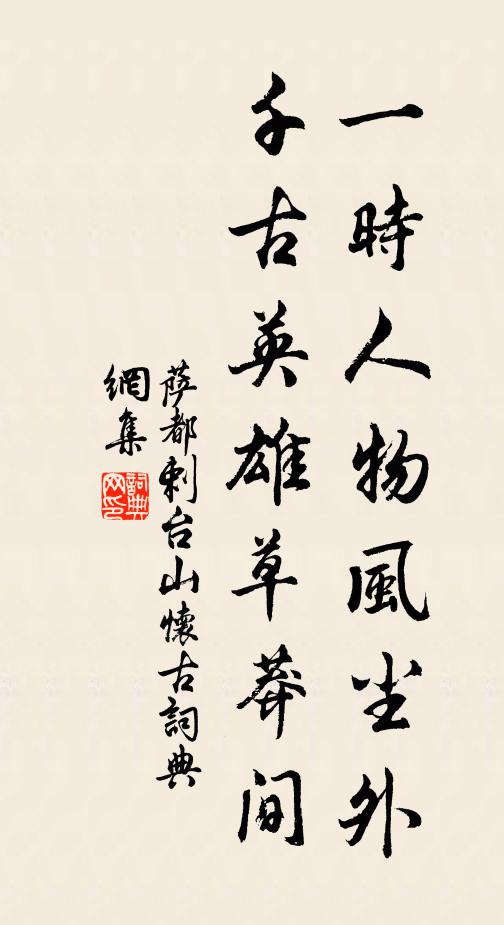 一時人物風尘外
千古英雄草莽间
萨都剌台山懷古詞典
網集
詞典网印